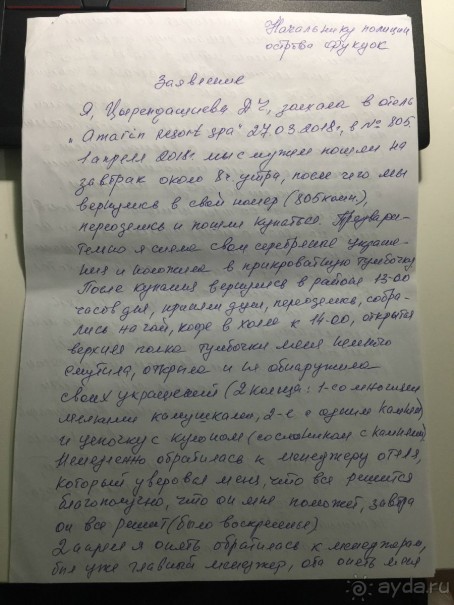 Начальнику полиции
острова Фукуок
Заявление
Я, Цырендашиева Д Ч, заехала в отель
„Amarin resort spa" 27.03.2018г, в № 805
1 апреля 2018г мы с мужем пошли на
завтрак около 8ч утра, после чего мы
вернулись в свой номер (805 комн.),
переоделись и пошли купаться Предвари-
тельно я сняла свои серебряные украше-
ния и положила в прикроватную тумбочку
После купания вернулись в районе 13-00
часов дня, приняли душ, переоделись, собра-
лись на чай, кофе в холе к 14-00, открытая
верхняя полка тумбочки меня немного
смутила, открыла и не обнаружила
своих украшений (2 кольца: 1-со многими
мелкими камушками, 2-е с одним камнем)
и цепочку с кулоном (со слоником с камнями)
Немедленно обратилась к менеджеру отеля,
который уверовал меня, что все решится
благополучно, что он мне поможет, завтра
он все решит (было воскресенье)
2 апреля я опять обратилась к менеджеру,
был уже главный менеджер, опять меня
ayda.ru